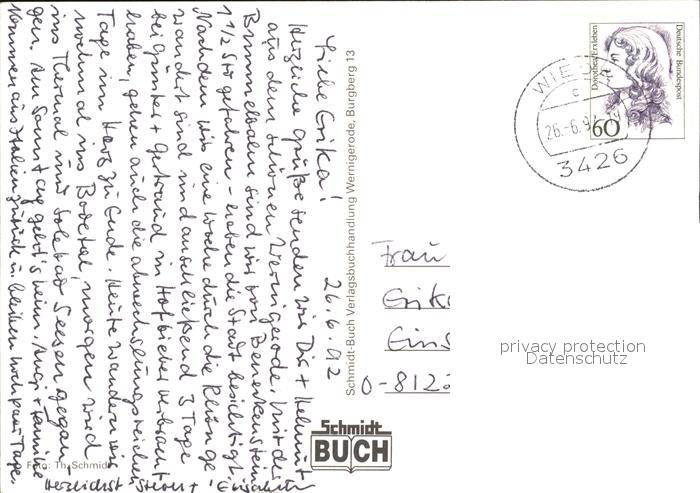 Liebe Erika! 26.6.92
Herzliche Grüße senden wir Dir + Helmut
aus dem schönen Wernigerode. Mit der
Brummelbahn sind wir von Benneckenstein
1 1/2 Std gefahren - haben die Stadt besichtigt.
Nachdem wir eine Woche durch die Rhön ge-
wandert sind und anschließend 3 Tage
bei günther + Gertraud in Hofbieber verbracht
haben, gehen auch die abwechslungsreichen
Tage im Harz zu Ende. Heute wandern wir
nochmal ins Bodetal, morgen wird
ins Thermal und Solebad Seesen gegan-
gen. Am Sonntag geht's heim.
kommen aus Italien zurück u. bleiben noch paar Tage.
Herzlichst
Schmidt-Buch Verlagsbuchhandlung Wernigerode, Burgberg 13
Foto: Th. Schmidt
Schmidt
BUCH
Deutsche Bundespost
Dorothea Erxleben
60
WIE
c
26.-6.92
3426
Frau
Erik
Eins
O-812
privacy protection
Datenschutz